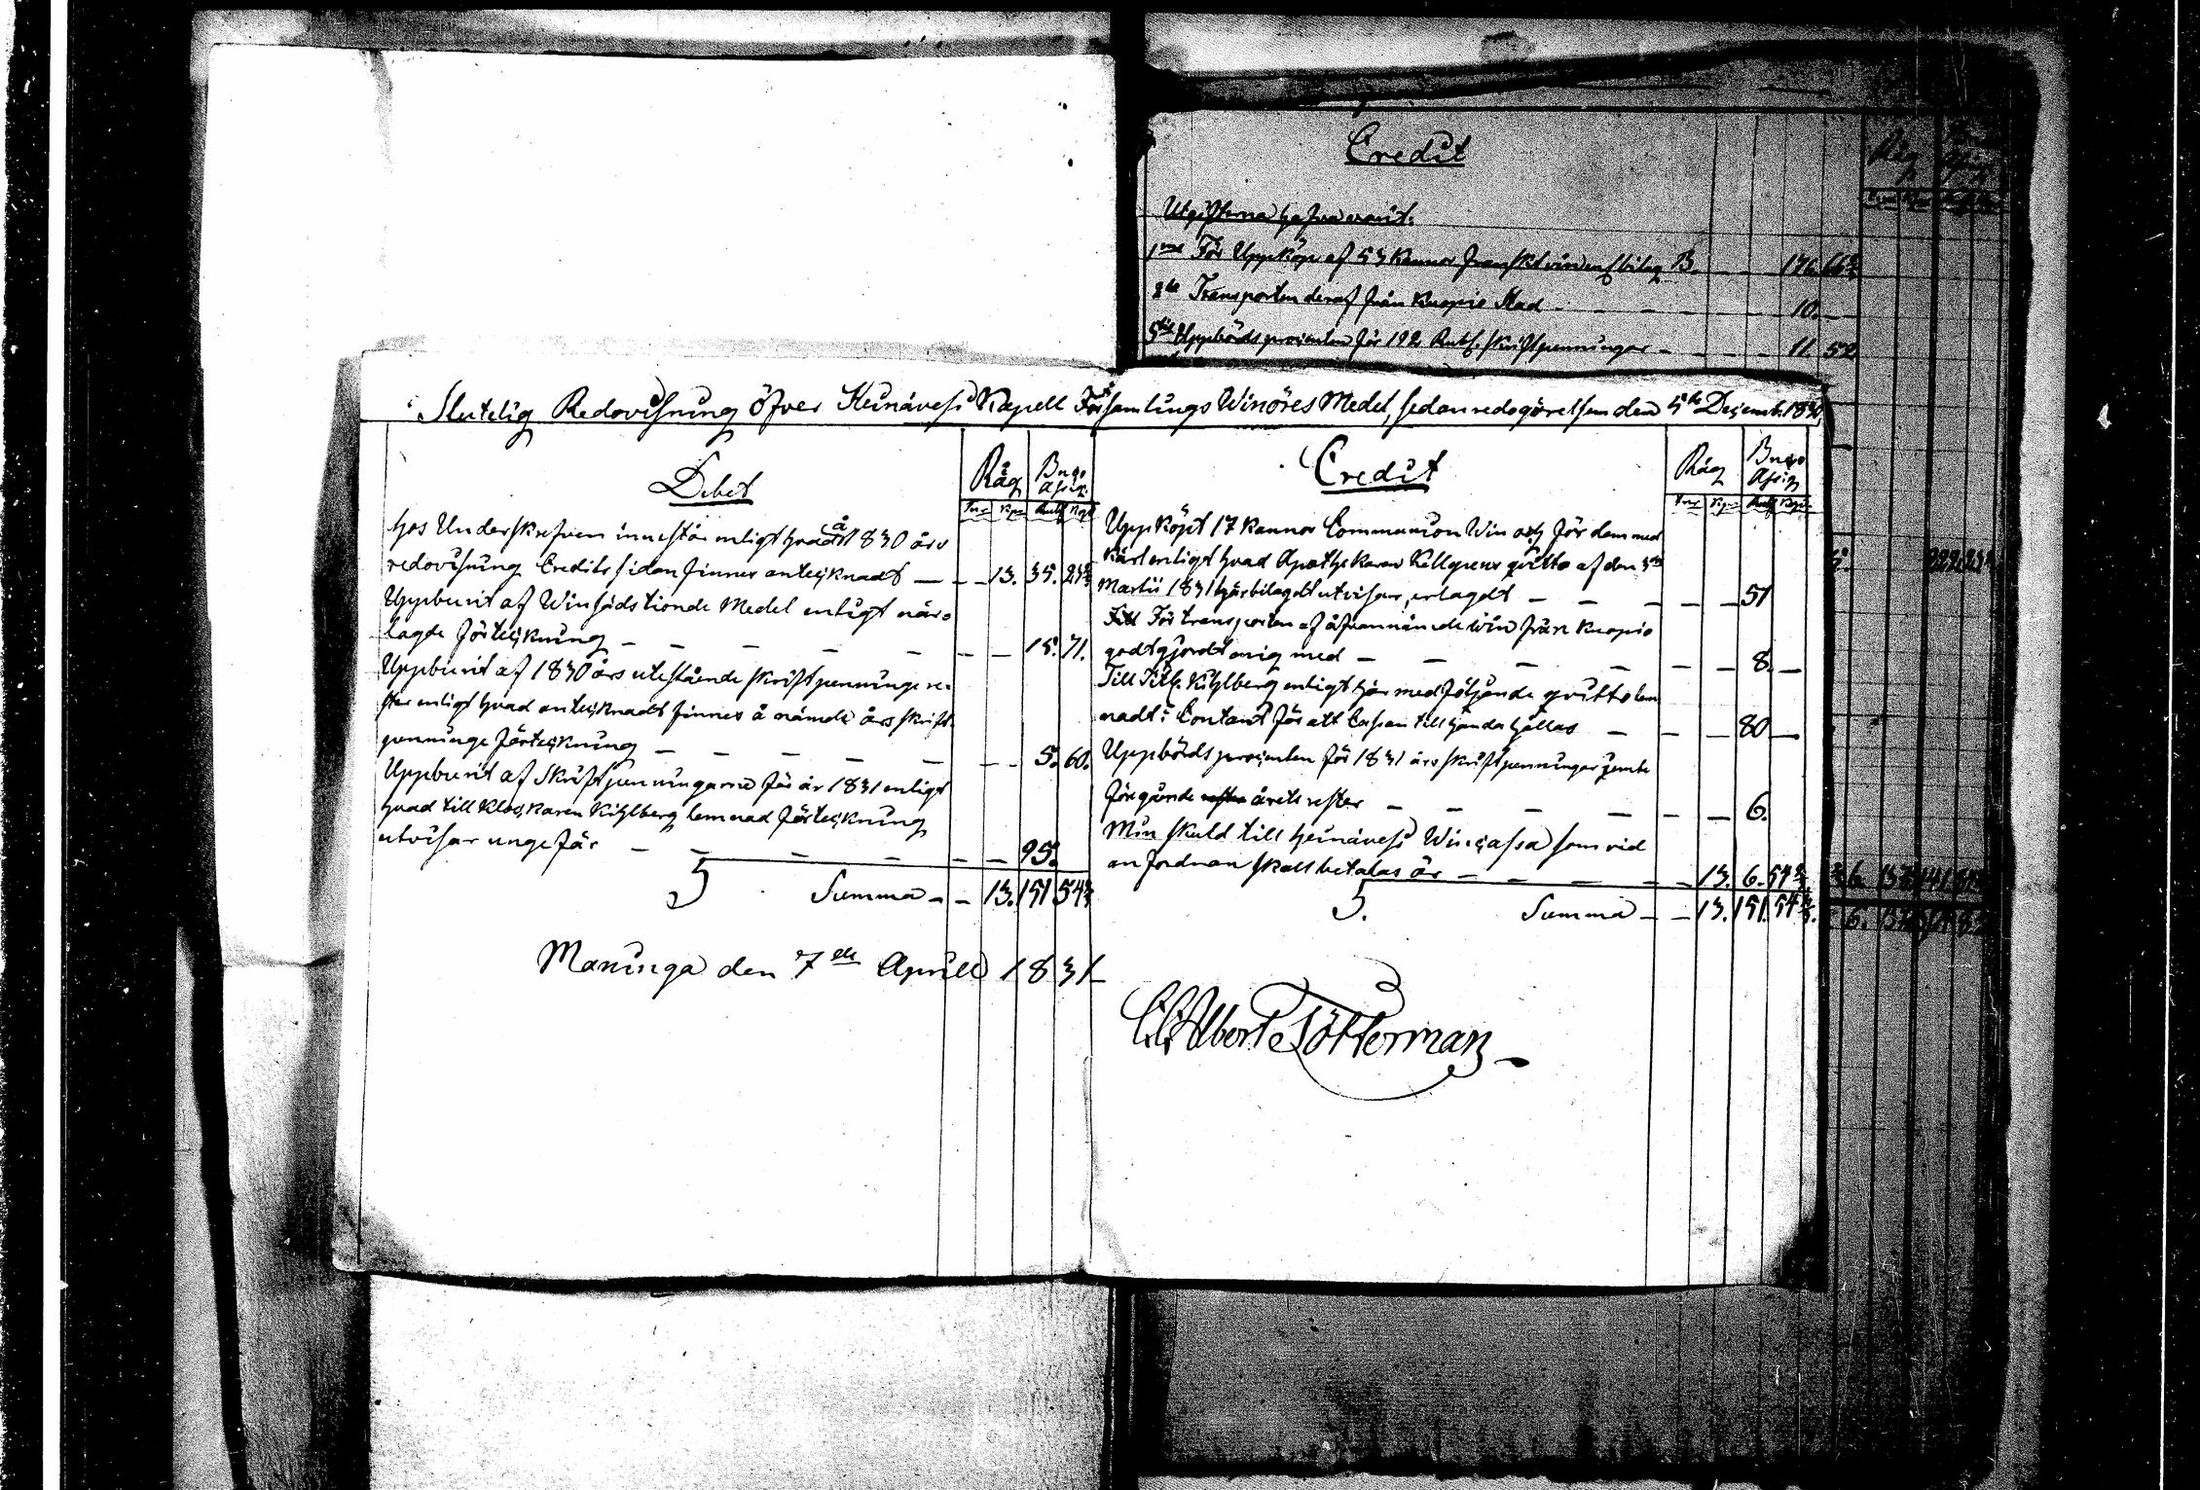 Credit
Råg
Utgifterna hafva varit:
1mo För Uppköp af 53 Kannor Franskt vin enl bilag B. — — 176 66⅔
2do Transporten deraf från Kuopio Stad — — — — 10. —
3tio Uppbörds procenten för 192 Rub. skriftpenningar — — — — 11. 52
Slutelig Redovisning öfver Heinävesi Kapell Församlings Winöres Medel, sedan redogörelsen den 5te Decemb. 1830
Debet
Råg Bnco Assig.
Tnr Kpr Rub Kop
Hos Underskrefven innestår enligt hvad å 1830 års
redovisning Credits sidan finnes anteknadt — — 13. 35. 23⅔
Uppburit af Winsäds tionde Medel enligt när-
lagde förtekning — — — — — — 15. 71.
Uppburit af 1830 års utestående skriftpenninge re-
ster enligt hvad anteknadt finnes å nämde års skrift
penninge förtekning — — — — — — — 5. 60.
Uppburit af Skriftpenningarne för år 1831 enligt
hvad till Klockaren Kihlberg lemnad förtekning
utvisar ungefär — — — — — — 95.
S. Summa — — 13. 151 54⅔
Credit
Råg Bnco Assig
Tnr Kpr Rub Kop
Uppköpt 17 Kannor Communion Win och för dem med
Kärl enligt hvad Apothekaren Kellgrens qvitto af den 3
Martii 1831 härbilagdt utvisar, erlagdt — — — — — 51
För transporten af åfvannämde win från Kuopio
godtgjordt mig med — — — — — — 8. —
Till Kihlberg enligt här med följande qvitto lem
nadt i Contant för att Cassan tillhanda hållas — — — 80 —
Uppbörds procenten för 1831 års skriftpenningar jemte
föregående årets rester — — — — — — 6.
Min skuld till Heinävesi Wincassa som vid
anfordran skall betalas är — — — — — 13. 6. 54⅔
S. Summa — — 13. 151. 54⅔.
Maninga den 7de Aprill 1831
Albert Lötterman